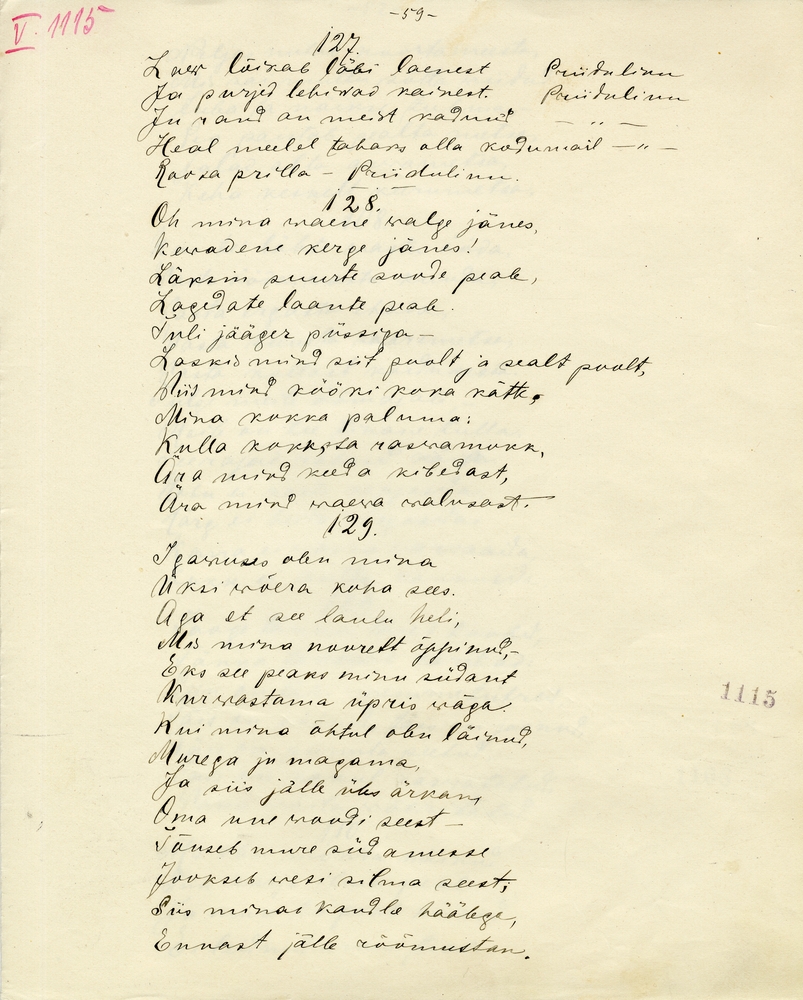 -59-
V. 1115
127.
Laew lõikab läbi laenest Priidulinn
Ja purjed lehiwad kainest. Priidulinn
Ju rand on meist kadund — „ —
Heal meelel tahaks olla kodumail — „ —
Roosa prilla - Priidulinn.
128.
Oh mina waene walge jänes,
Kewadene kerge jänes!
Läksin suurte soode peale,
Lagedate laante peale.
Tuli jääger püssiga —
Laskis mind siit poolt ja sealt poolt,
Wiis mind kööki koka kätte,
Mina kokka paluma:
Kulla kokk, sa raswamokk,
Ära mind keeda kibedast,
Ära mind waewa walusast.
129.
Igawuses olen mina
Üksi wõera koha sees.
Aga et see laulu heli,
Mis mina noorelt õppinud,-
Eks see peaks minu südant
Kurwastama üpris wäga.
Kui mina õhtul olen läinud,
Murega ju magama,
Ja siis jälle üles ärkan,
Oma une woodi seest —
Tõuseb mure südamesse
Jookseb wesi silma seest;
Siis minas kandle häälega,
Ennast jälle rõõmustan.
1115